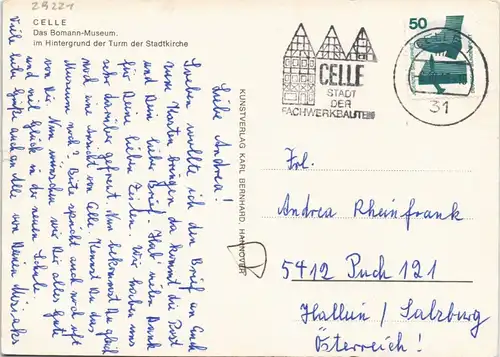 2B221
CELLE
Das Bomann-Museum.
im Hintergrund der Turm der Stadtkirche
Liebe Andrea!
Soeben wollte ich den Brief an Euch
zum Kasten bringen da kommt die Post
und Dein lieber Brief. Hab' vielen Dank
für Deine lieben Zeilen. Wir haben uns
sehr darüber gefreut. Nun bekommst Du gleich
noch eine Ansicht von Celle. Kennst Du das
Museum noch? Bitte sprich auch noch oft
von Die Nun wünschen wir Dir alles Gute
und viel Glück in der neuen Schule.
Viele liebe Grüße auch an Alle von Deinen
KUNSTVERLAG KARL BERNHARD, HANNOVER
CELLE
STADT
DER
FACHWERKBAUTEN
50
31
Frl.
Andrea Rheinfrank
5412 Puch 121
Hallein / Salzburg
Österreich!